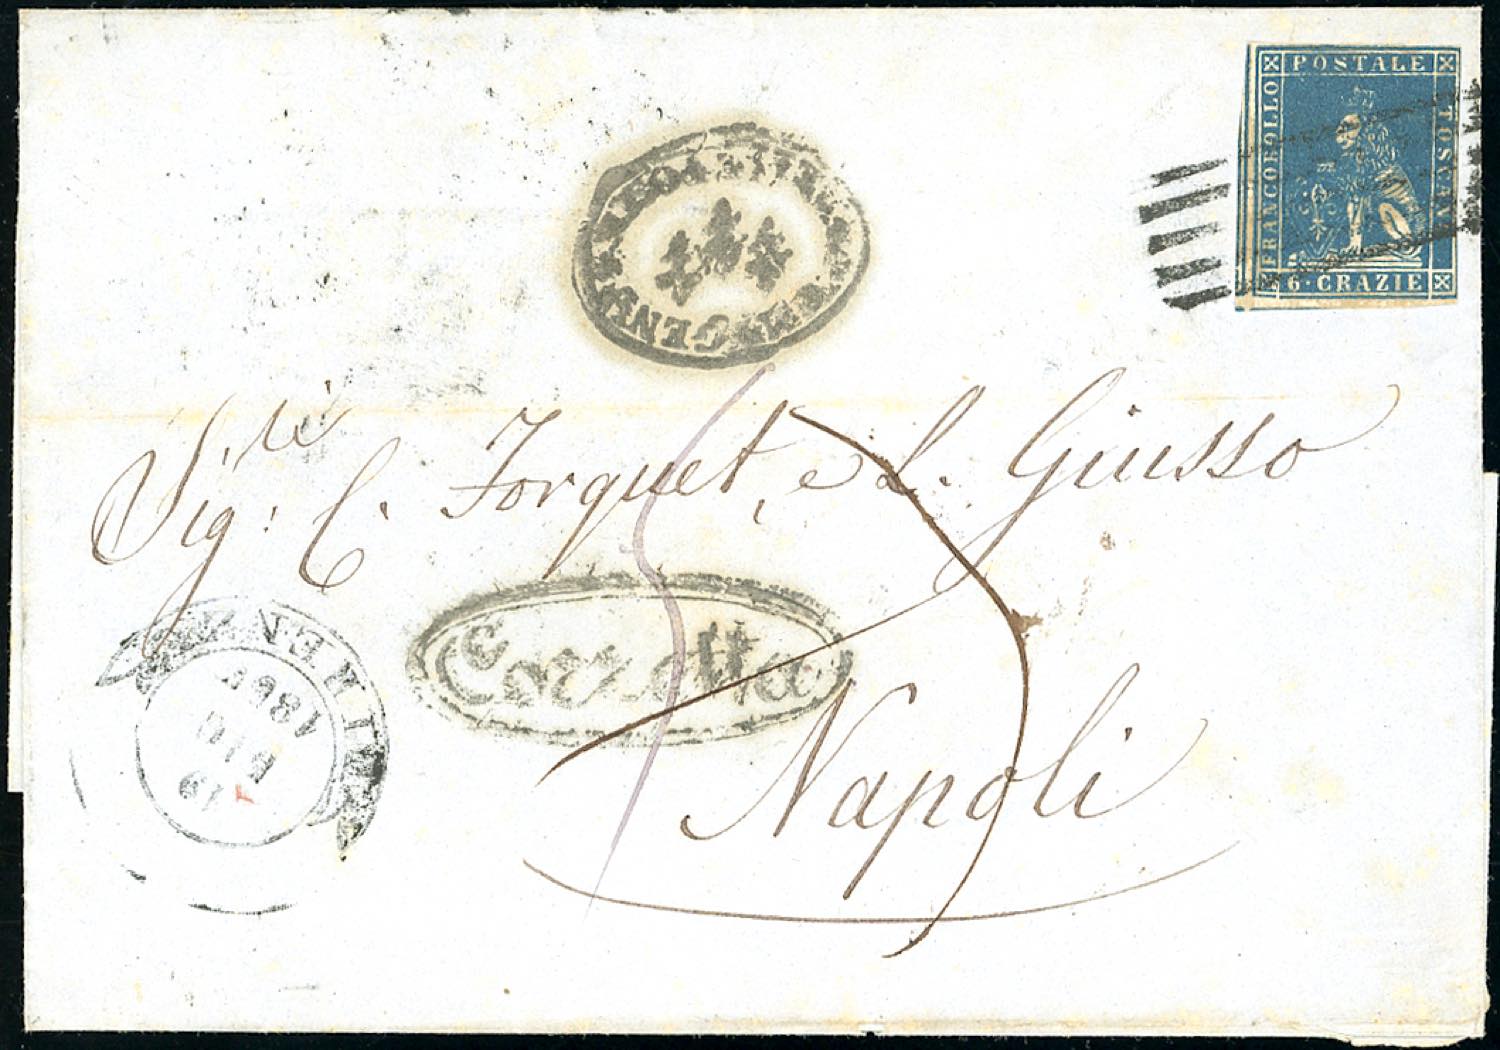 POSTALE
FRANCOBOLLO
TOSCANO
6·CRAZIE
Sig.ri C. Forquet, e L. Giusso
Corretta
FIRENZE
19
GIU
Napoli